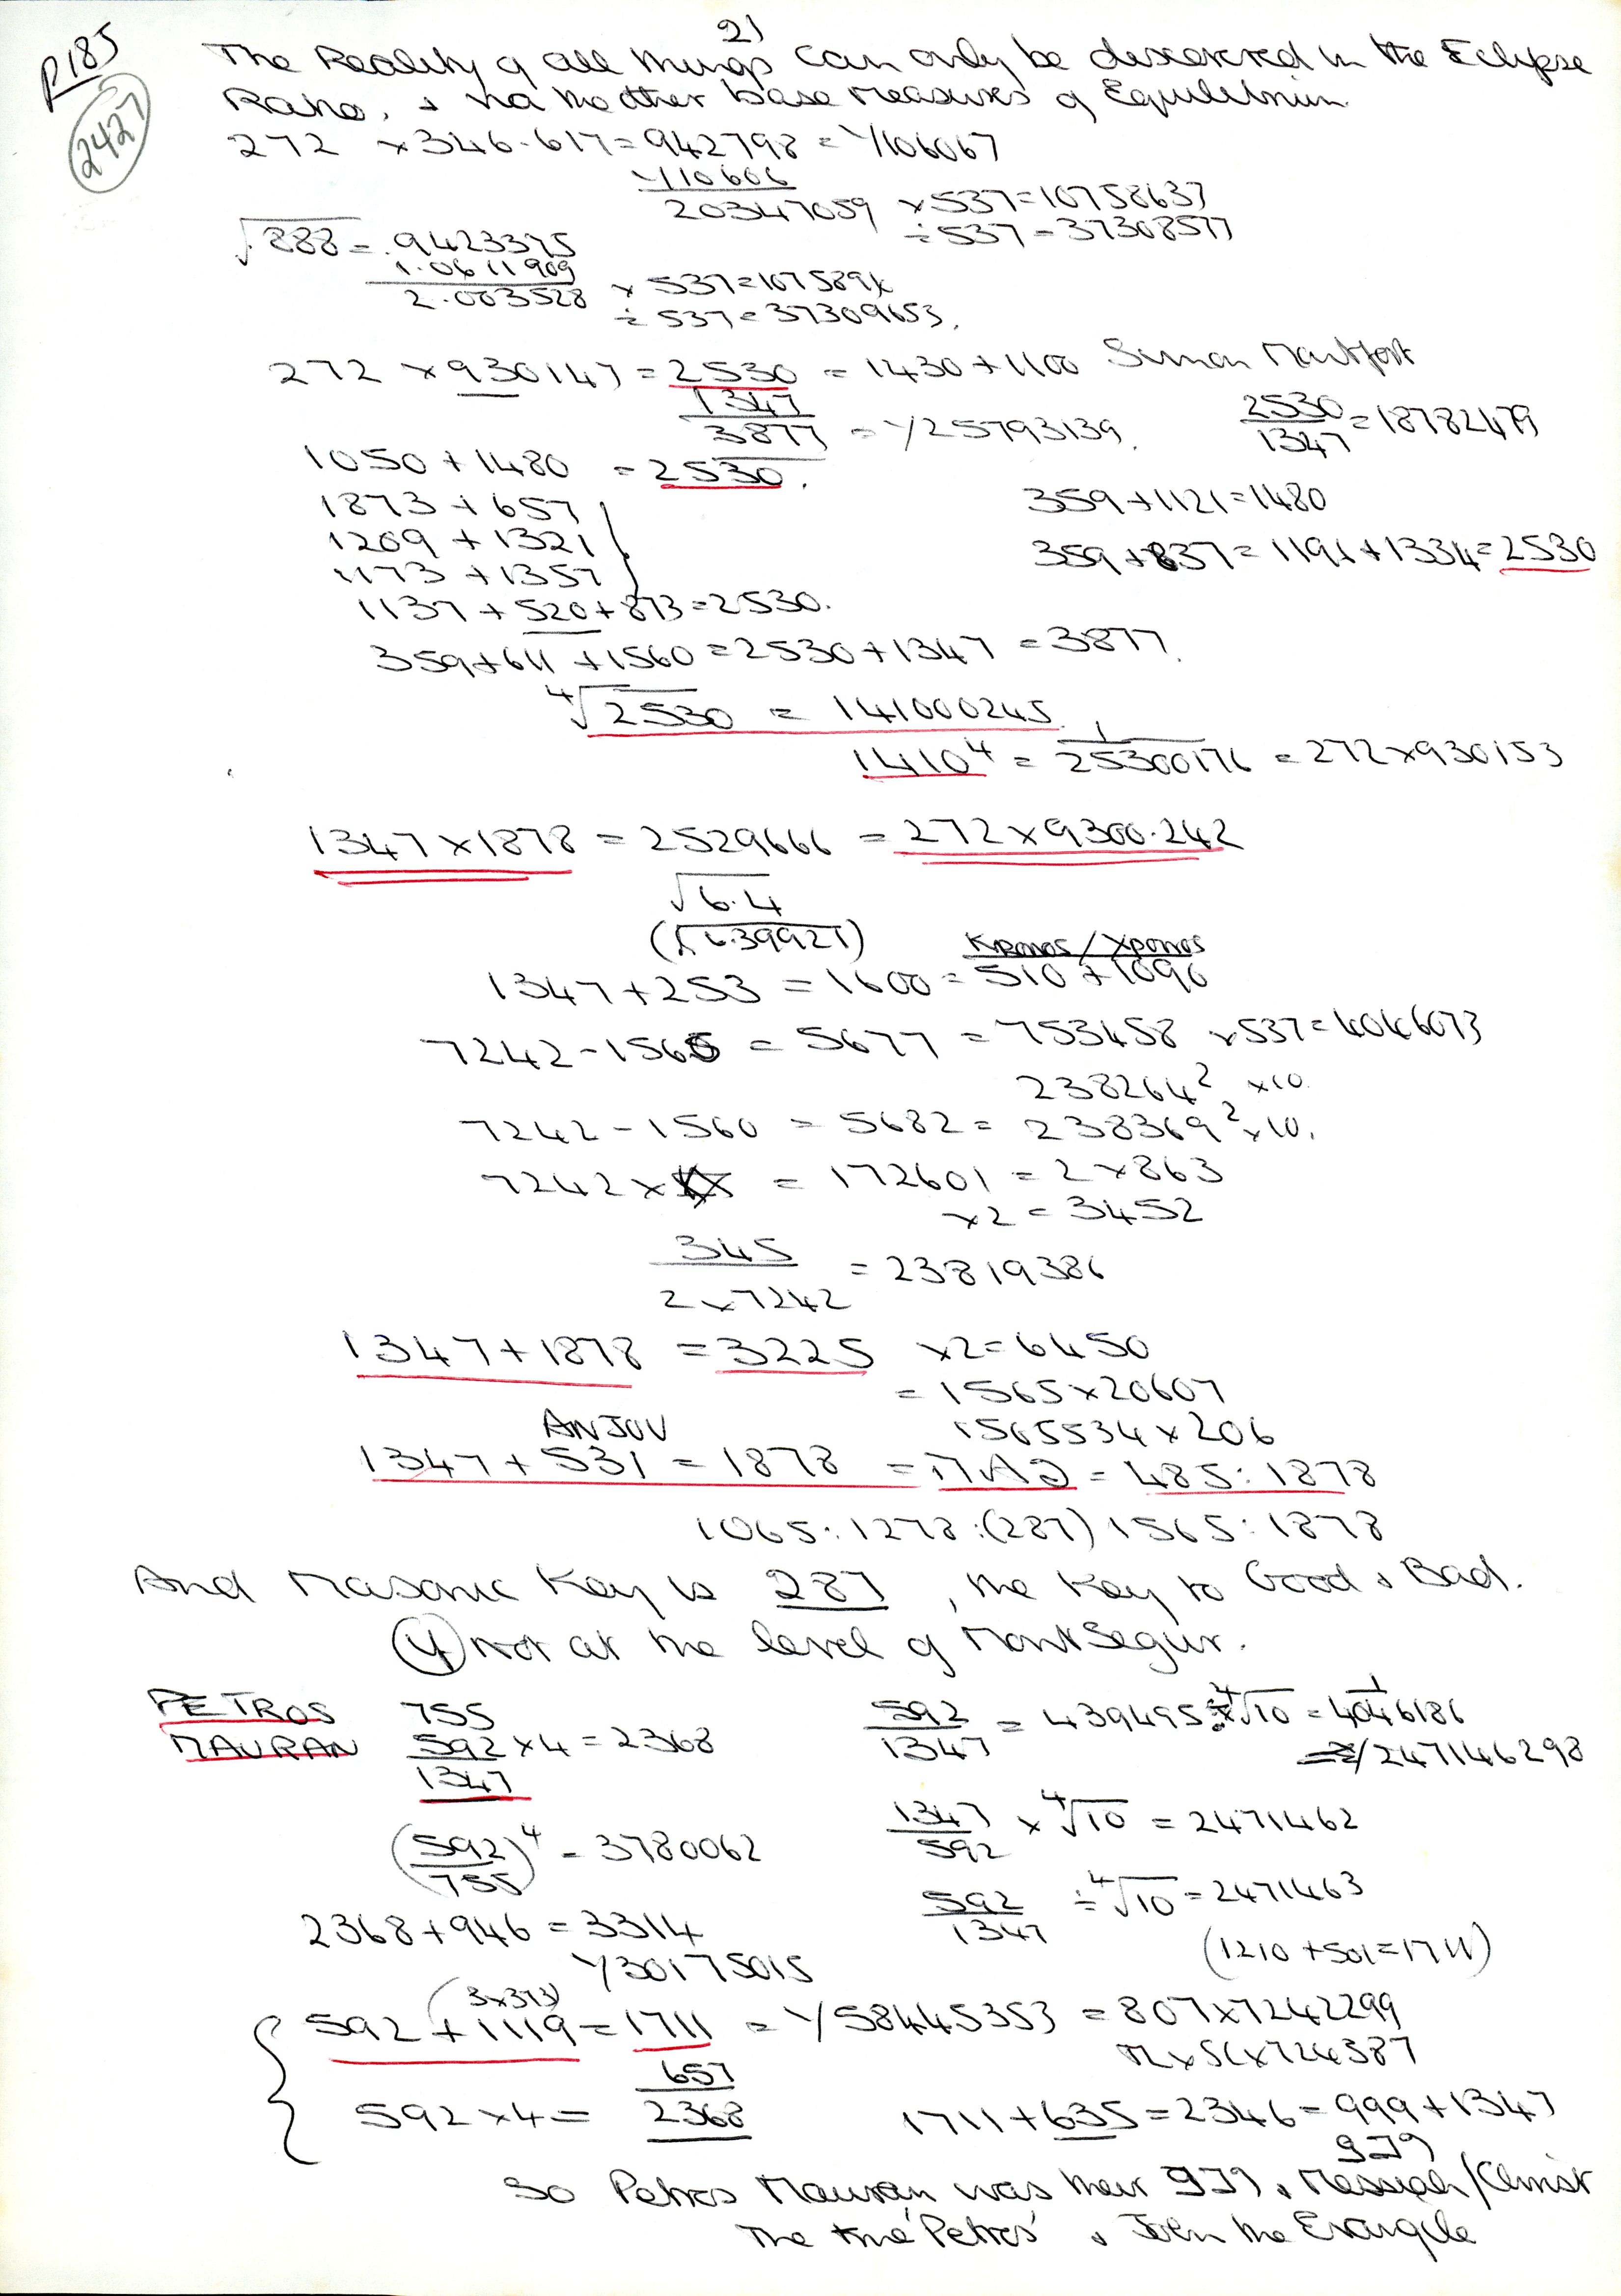 21
P185
2427
The Reality of all things can only be discovered in the Eclipse
Ratio, & via the other base measures of Equilibrium.
272 × 346.617 = 942798 = 1/106067
1/10606
20347059 × 537 = 10758637
÷ 537 = 37308577
√888 = .9423375
1.0611909
2.003528 × 537 = 107589
÷ 537 = 37309653.
272 × 930147 = 2530 = 1430 + 1100 Simon Montfort
1347
3877 = 1/25793139.
2530/1347 = 18782479
1050 + 1480 = 2530.
1873 + 657
359 + 1121 = 1480
1209 + 1321
1173 + 1357
359 + 837 = 1196 + 1334 = 2530
1137 + 520 + 873 = 2530.
359 + 611 + 1560 = 2530 + 1347 = 3877.
⁴√2530 = 141000245
1410⁴ = 1/25300176 = 272 × 930153
1347 × 1878 = 2529666 = 272 × 9300.242
√6.4
(√6.39927)
Κρονος / Χρονος
1347 + 253 = 1600 = 510 + 1090
7242 - 1565 = 5677 = 753458 × 537 = 4046073
238264² × 10.
7242 - 1560 = 5682 = 238369² × 10.
7242 × = 172601 = 2 × 863
× 2 = 3452
345/2 × 7242 = 23819386
1347 + 1878 = 3225 × 2 = 6450
= 1565 × 20607
ANJOU
1565534 × 206
1347 + 531 = 1878 = = 485 : 1878
1065 : 1278 : (287) 1565 : 1878
And Masonic Key is 287, the Key to Good & Bad.
not at the level of MontSegur.
PETROS 755
MAURAN 592 × 4 = 2368
1347
592/1347 = 439495 ⁴√10 = 1/4046186
1/247146298
(592/755)⁴ = 3780062
1347/592 × ⁴√10 = 2471462
592/1347 ÷ ⁴√10 = 2471463
2368 + 946 = 3314
1/30175015
(1210 + 501 = 1711)
(3×373)
592 + 1119 = 1711 = 1/58445353 = 807 × 7242299
657
592 × 4 = 2368
1711 + 635 = 2346 = 999 + 1347
So Petros Mauran was their & Messiah/Christ
The true 'Petros' & John the Evangile